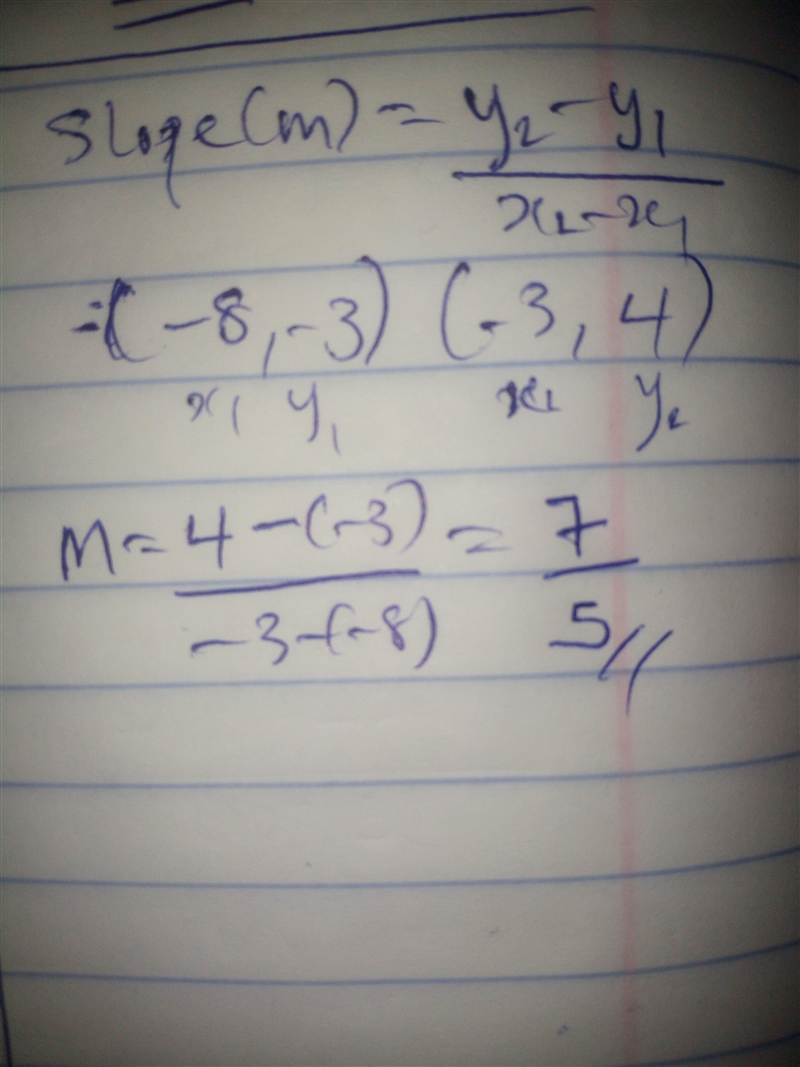 Slope(m) = y₂ - y₁ / x₂ - x₁
=(-8, -3) (-3, 4)
x₁ y₁ x₂ y₂
M = 4 - (-3) / -3 - (-8) = 7 / 5 //